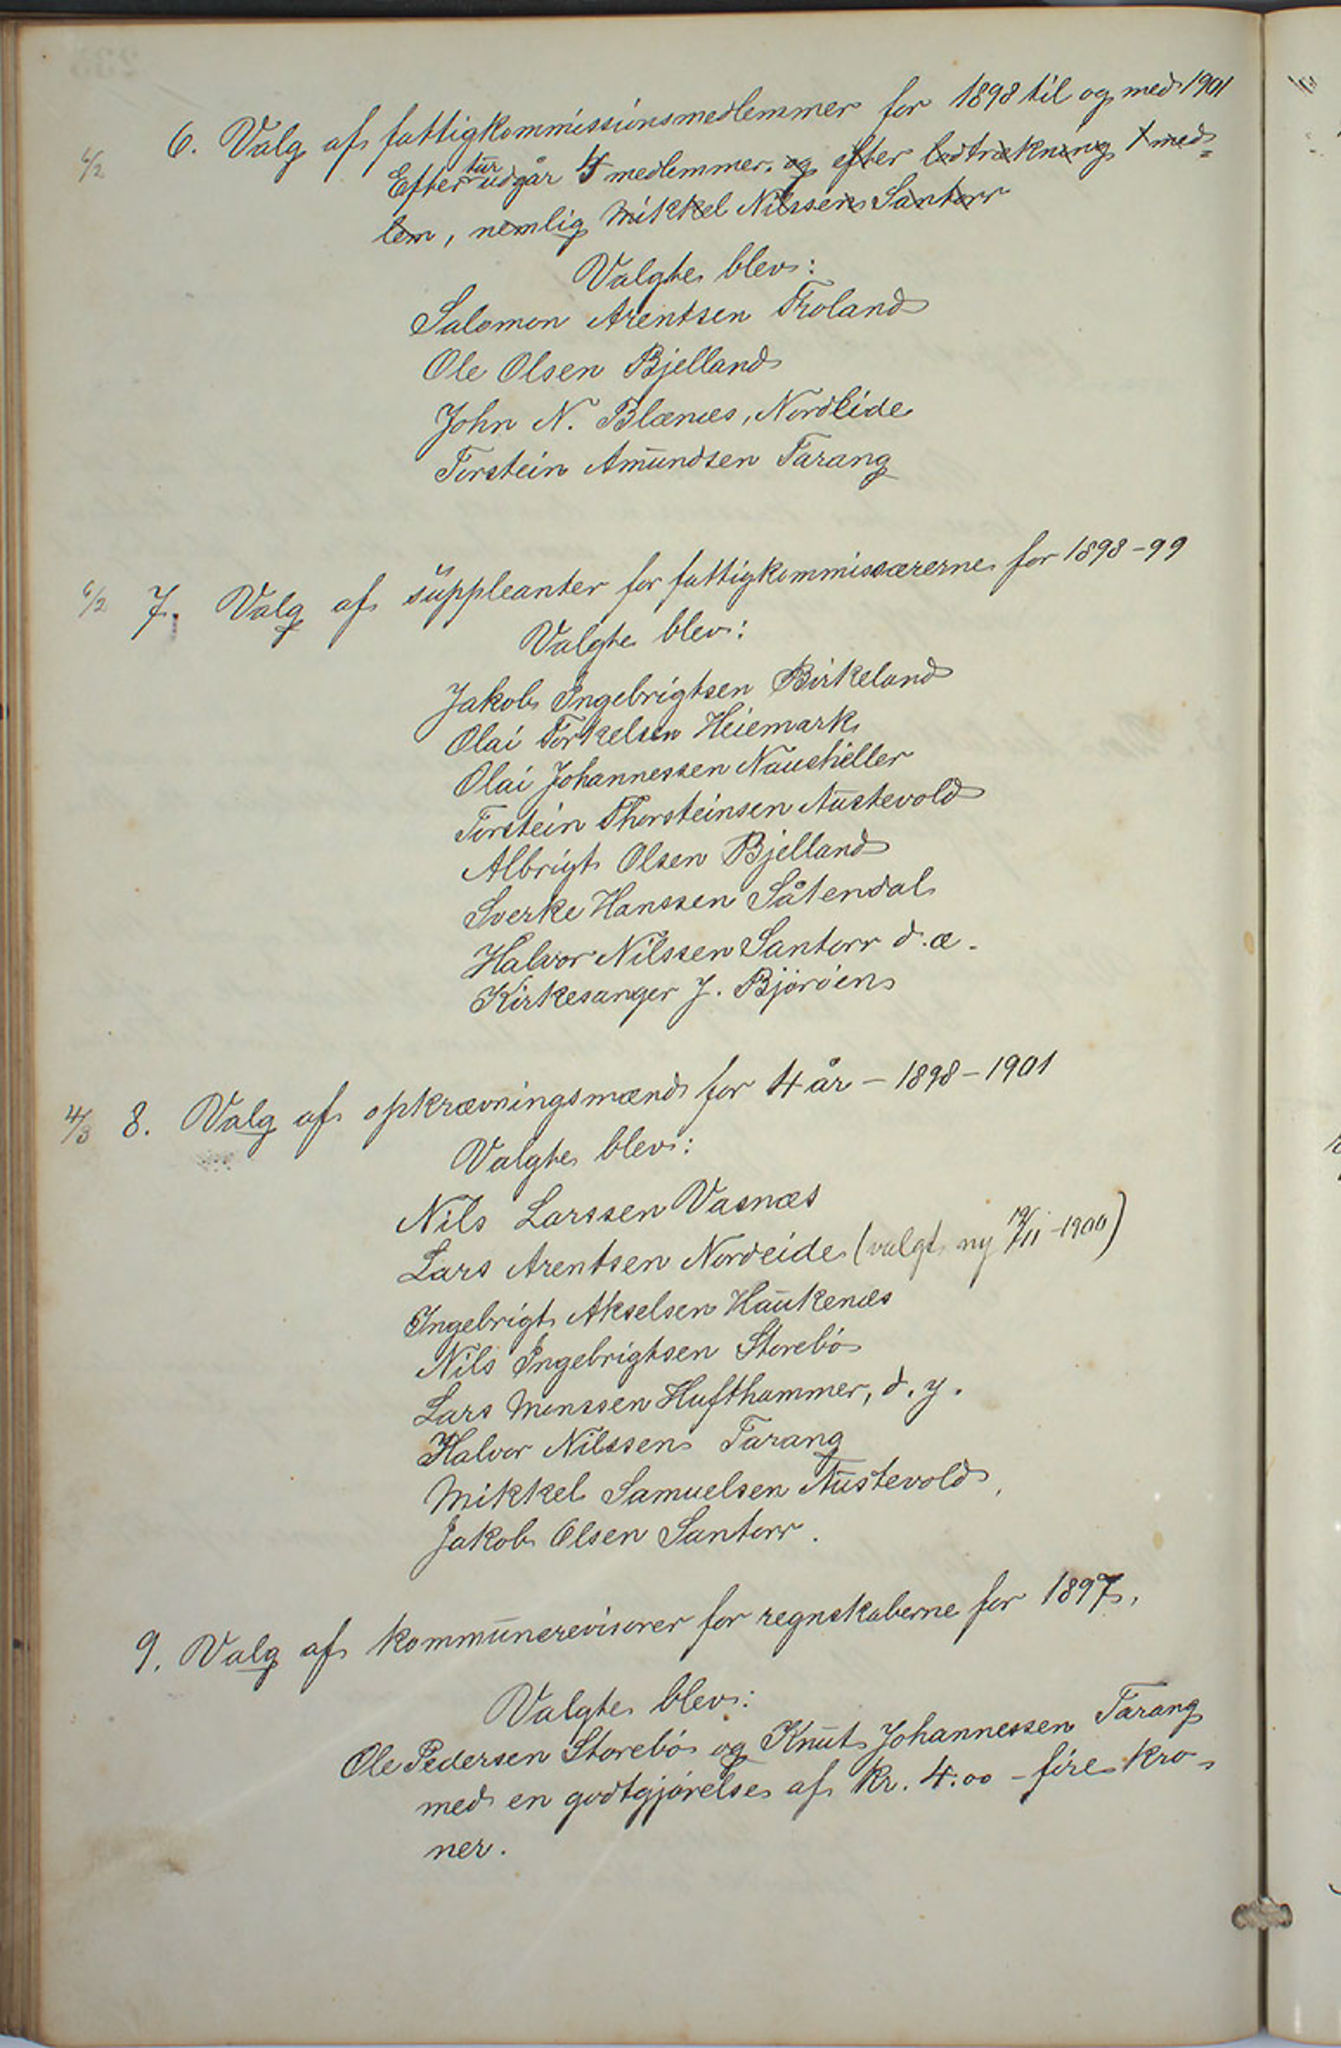 6. Valg af fattigkommissionsmedlemmer for 1898 til og med 1901
6/2
Efter tur udgår 4 medlemmer. og efter lodtrækning 1 med=
lem, nemlig Mikkel Nilssen Santorr
Valgte blev:
Salomon Arentsen Troland
Ole Olsen Bjelland
John N. Blænæs, Nordeide
Torstein Amundsen Tarang
6/2 7. Valg af suppleanter for fattigkommissærerne for 1898-99
Valgte blev:
Jakob Ingebrigtsen Birkeland
Olai Torkelsen Heiemark
Olai Johannessen Naustheller
Torstein Thorsteinsen Austevold
Albrigt Olsen Bjelland
Sverke Hanssen Såtendal
Halvor Nilssen Santorr d. æ.
Kirkesanger J. Björöen
4/3 8. Valg af opkrævningsmænd for 4 år - 1898-1901
Valgte blev:
Nils Larssen Vasnæs
Lars Arentsen Nordeide (valgt ny 19/11-1900)
Ingebrigt Akselsen Haukenæs
Nils Ingebrigtsen Storebö
Lars Monssen Hufthammer, d. y.
Halvor Nilssen Tarang
Mikkel Samuelsen Austevold,
Jakob Olsen Santorr.
9. Valg af kommunerevisorer for regnskaberne for 1897.
Valgte blev:
Ole Pedersen Storebö og Knut Johannessen Tarang
med en godtgjörelse af kr. 4.00 - fire kro-
ner.